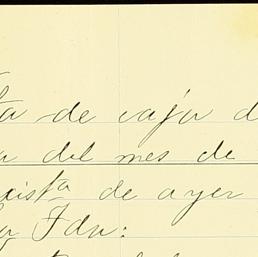 ta de caja d
a del mes de
xistª de ayer
a Fda: